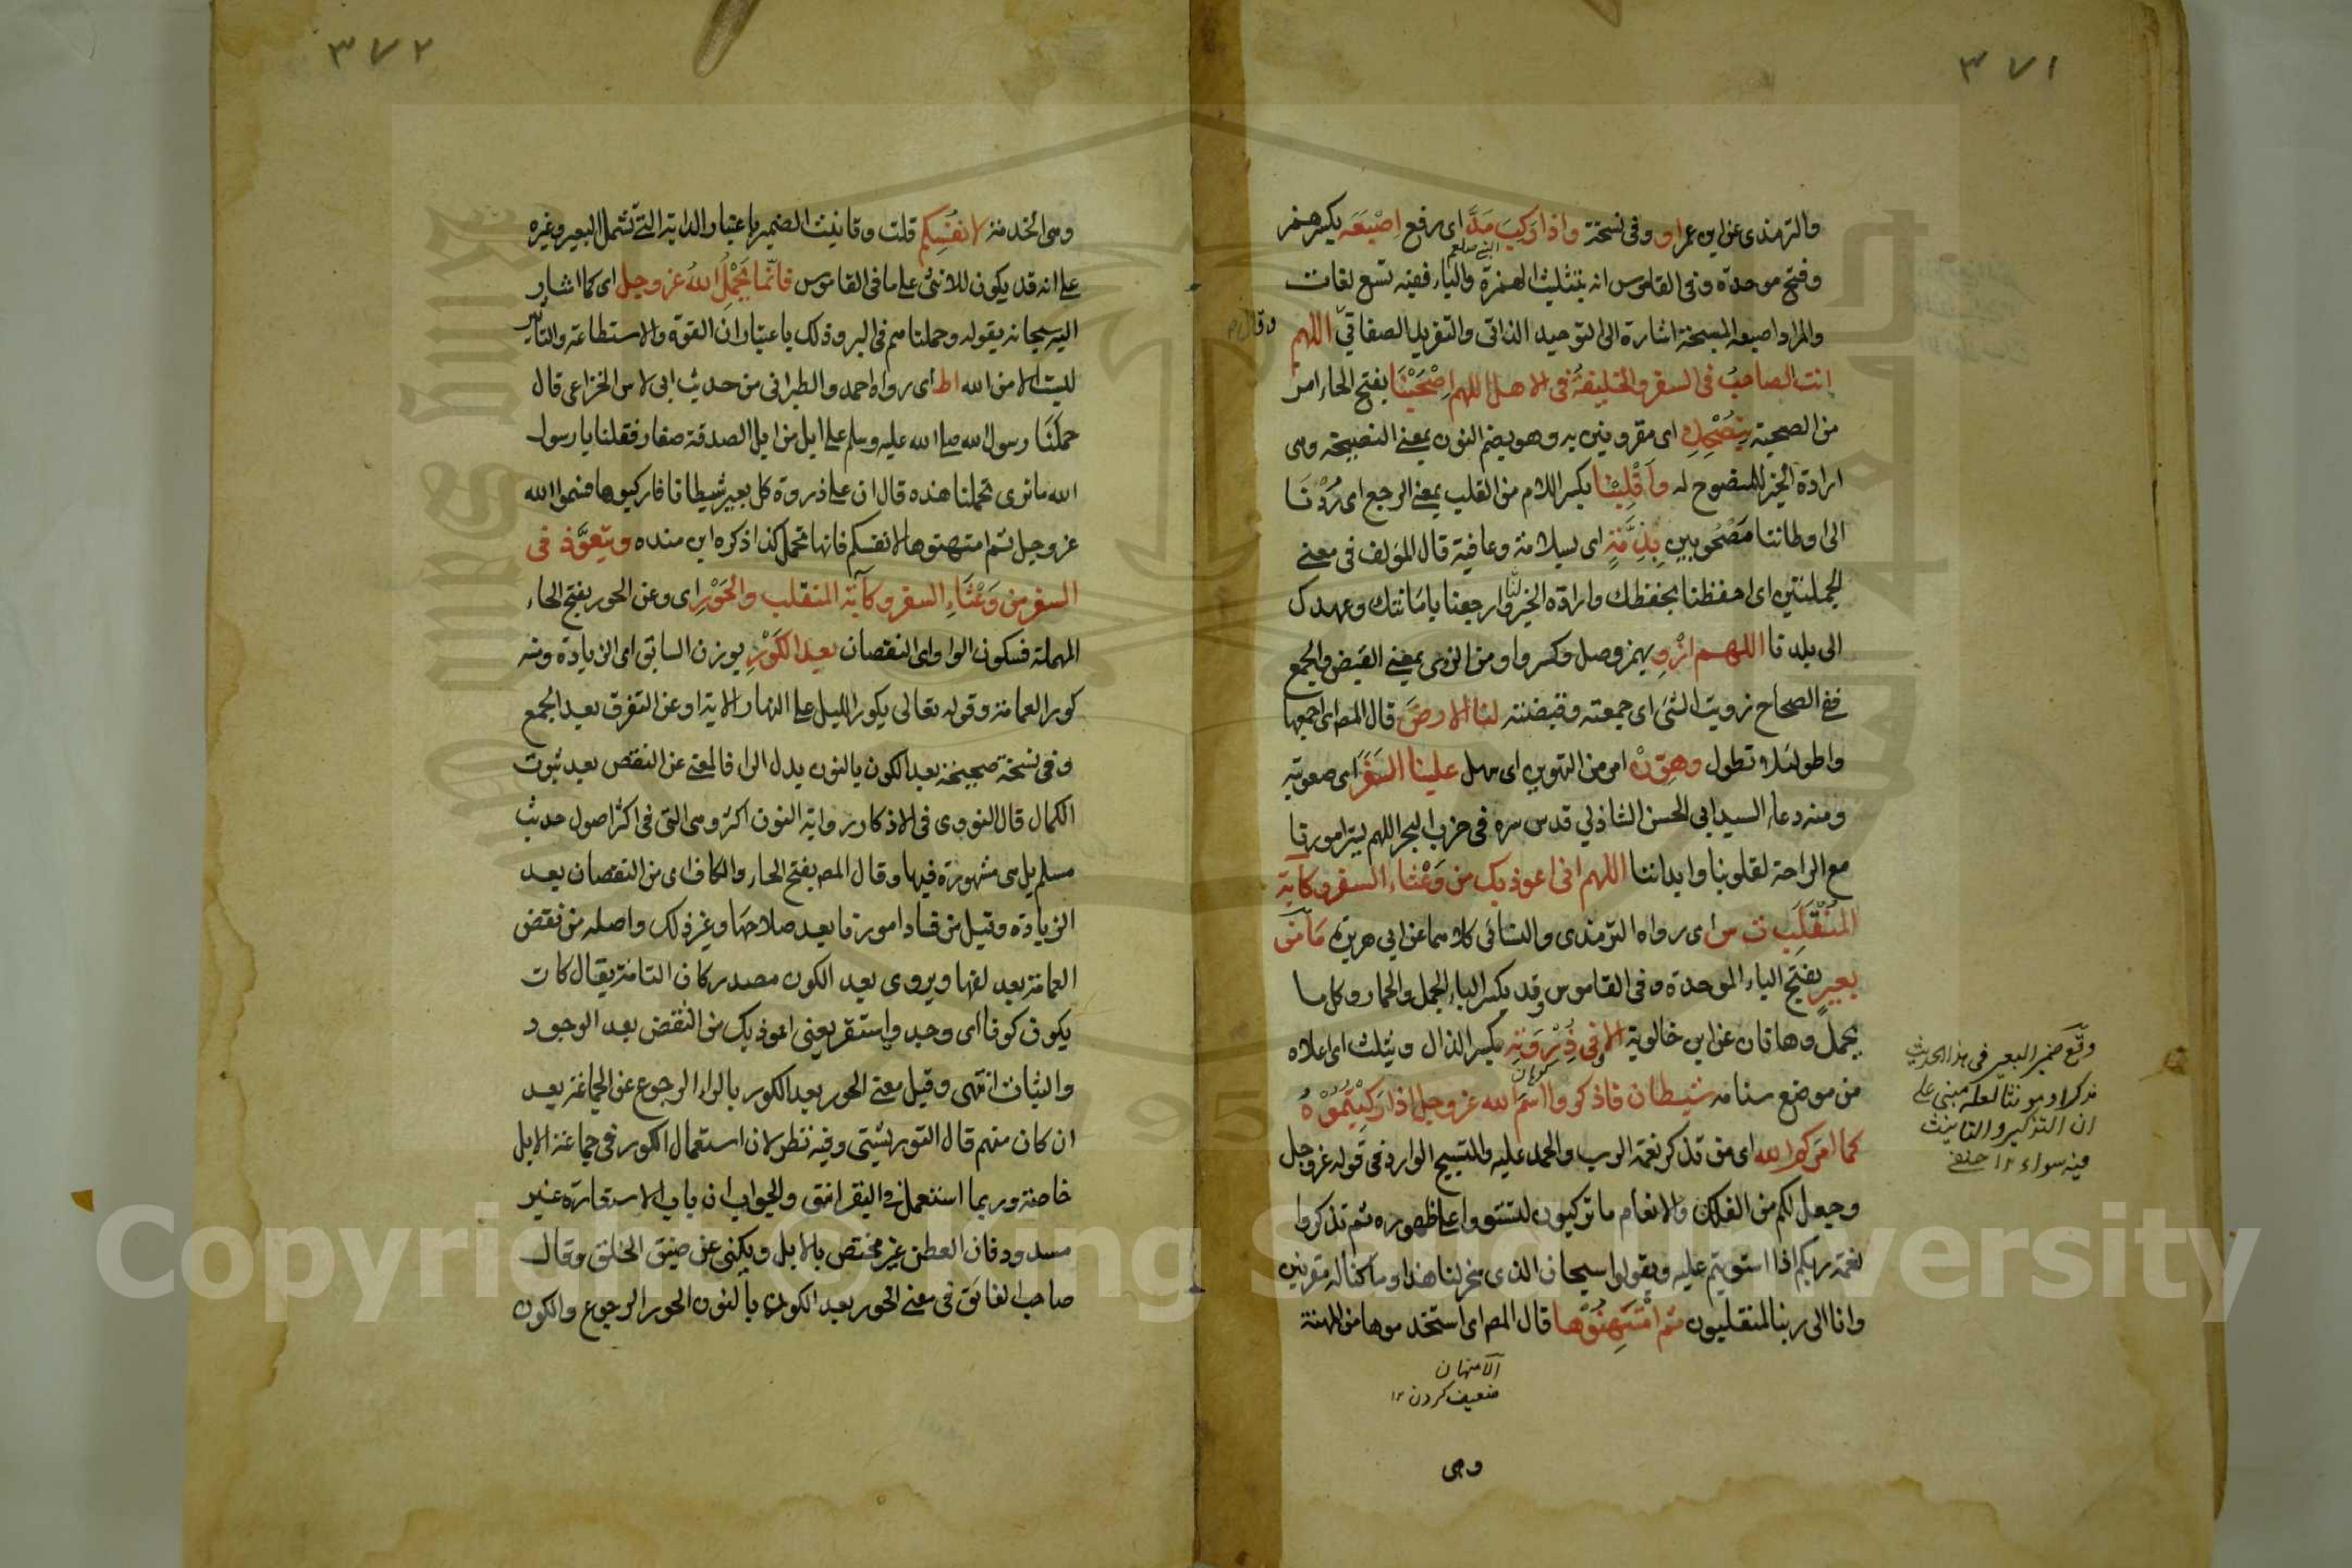 ٣٧١
والترمذى عن ابن عمر او وفى نسخة واذا ركب مَدَّ اى رفع اِصْبَعَه بكسر همز
وفتح موحدة وفى القاموس انه بتثليث الهمزة والباء ففيه تسع لغات
والمراد اصبعه المسبحة اشارة الى التوحيد الذاتى والتفريد الصفاتىّ اللهم
وقال
انت الصاحبُ فى السفر والخليفةُ فى الاهل اللهم اِصْحَبْنَا بفتح الحاء امر
من الصحبة بِنُصْحِكَ اى مقرونين به وهو بضم النون بمعنى النصيحة وهى
ارادة الخير للمنصوح له وَاَقْلِبْنَا بكسر اللام من القلب بمعنى الرجع اى رُدَّنَا
الى اوطاننا مَصْحُوبين بِذِمَّةٍ اى بسلامة وعافية قال المؤلف فى معنى
الجملتين اى احفظنا بحفظك وارادة الخير لنا وارجعنا بامَانتك وعهدك
الى بلدنا اللهم ازْوِ بهمز وصل وكسر واو من الزوى بمعنى القبض والجمع
ففى الصحاح زويت الشئ اى جمعته وقبضته لنا الارضَ قال المصـ اى اجمعها
واطوها لئلا تطول وهَوِّنْ امر من التهوين اى سهل علينا السَّفَرَ اى صعوبته
ومنه دعاء السيد ابى الحسن الشاذلي قدس سره فى حزب البحر اللهم يسر امورنا
مع الراحة لقلوبنا وابداننا اللهم انى اعوذ بك من وَعْثاء السفر وكآبة
المُنْقَلَبِ ت س اى رواه الترمذى والنسائى كلاهما عن ابي هريرة مَا من
بعيرٍ بفتح الباء الموحدة وفى القاموس وقد يكسر الباء الجمل والحمار وكل ما
يحمل وهاتان عن ابن خالوية الا فى ذِرْوَتِه بكسر الذال ويثلث اى اعلاه
من موضع سنامه شيطان فاذكروا اسمَ الله عز وجل اذا رَكِبْتُمُوْهُ
كوهان
كما امركم الله اى من تذكر نعمة الرب والحمد عليه والتسبيح الوارد فى قوله عز وجل
وجعل لكم من الفلك والانعام ما تركبون لتستووا على ظهوره ثم تذكروا
نعمة ربكم اذا استويتم عليه وتقولوا سبحان الذى سخر لنا هذا وما كنا له مقرنين
وانا الى ربنا لمنقلبون ثم امْتَهِنُوْها قال المصـ اى استخدموها من المهنة
الامتهان
ضعيف كردن ١٢
وهى
وقع ضمير البعير فى هذا الحديث
مذكرا ومؤنثا لعله مبنى على
ان التذكير والتانيث
فيه سواء ١٢
٣٧٢
وهى الخدمة لانفُسِكم قلت وتانيث الضمير باعتبار الدابة التى تشمل البعير وغيره
على انه قد يكون للانثى على ما فى القاموس فانّما يَحْمِلُ اللهُ عز وجل اى كما اشار
اليه سبحانه بقوله وحملناهم فى البر وذلك باعتبار ان القوة والاستطاعة والتاثير
ليست الا من الله اط اى رواه احمد والطبرانى من حديث ابى لاس الخزاعى قال
حمَلَنَا رسول الله صلى الله عليه وسلم على ابل من ابل الصدقة صغار فقلنا يا رسول
الله ما نرى تحملنا هذه قال ان على ذروة كل بعير شيطانا فاركبوها فسموا الله
عز وجل ثم امتهنوها لانفسكم فانها تحمل كذا ذكره ابن منده ويَتعوَّذ فى
السفر من وَعْثَاءِ السفر وكآبة المنقلب والحَوْرِ اى وعن الحور بفتح الحاء
المهملة فسكون الواو اى النقصان بعد الكَوْرِ بوزن السابق اى الزيادة ومنه
كور العمامة وقوله تعالى يكور الليل على النهار الاية او عن التفرق بعد الجمع
وفى نسخة صحيحة بعد الكون بالنون بدل الراء فالمعنى عن النقص بعد ثبوت
الكمال قال النووى فى الاذكار رواية النون اكثر وهى التى فى اكثر اصول حديث
مسلم بل هى مشهورة فيها وقال المصـ بفتح الحاء والكاف اى من النقصان بعد
الزيادة وقيل من فساد امورنا بعد صلاحهَا وغير ذلك واصله من نقض
العمامة بعد لفها ويروى بعد الكون مصدر كان التامة يقال كان
يكون كونا اى وجد واستقر يعنى اعوذ بك من النقض بعد الوجود
والثبات انتهى وقيل معنى الحور بعد الكور بالراء الرجوع عن الجماعة بعد
ان كان منهم قال التوربشتى وفيه نظر لان استعمال الكور فى جماعة الابل
خاصة وربما استعمل فى البقر انتهى والجواب ان باب الاستعارة غير
مسدود فان العطن غير مختص بالابل ويكنى عن ضيق الخلق وقال
صاحب الفائق فى معنى الحور بعد الكون بالنون الحور الرجوع والكون
Copyright © King Saud University
1957